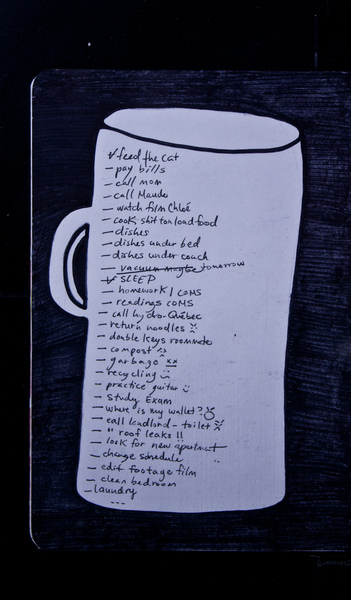 ✓ feed the cat
- pay bills
- call mom
- call Maude
- watch film Chloé
- cook shit ton load food
- dishes
- dishes under bed
- dishes under couch
- vacuum maybe tomorrow
✓ SLEEP
- homework / COMS
- readings COMS
- call hydro-Québec
- return noodles
- double keys roommate
- compost
- garbage xx
- recycling
- practice guitar
- study Exam
- where is my wallet?
- call landlord - toilet
- " roof leaks !!
- look for new apartment
- change schedule
- edit footage film
- clean bedroom
- laundry
---